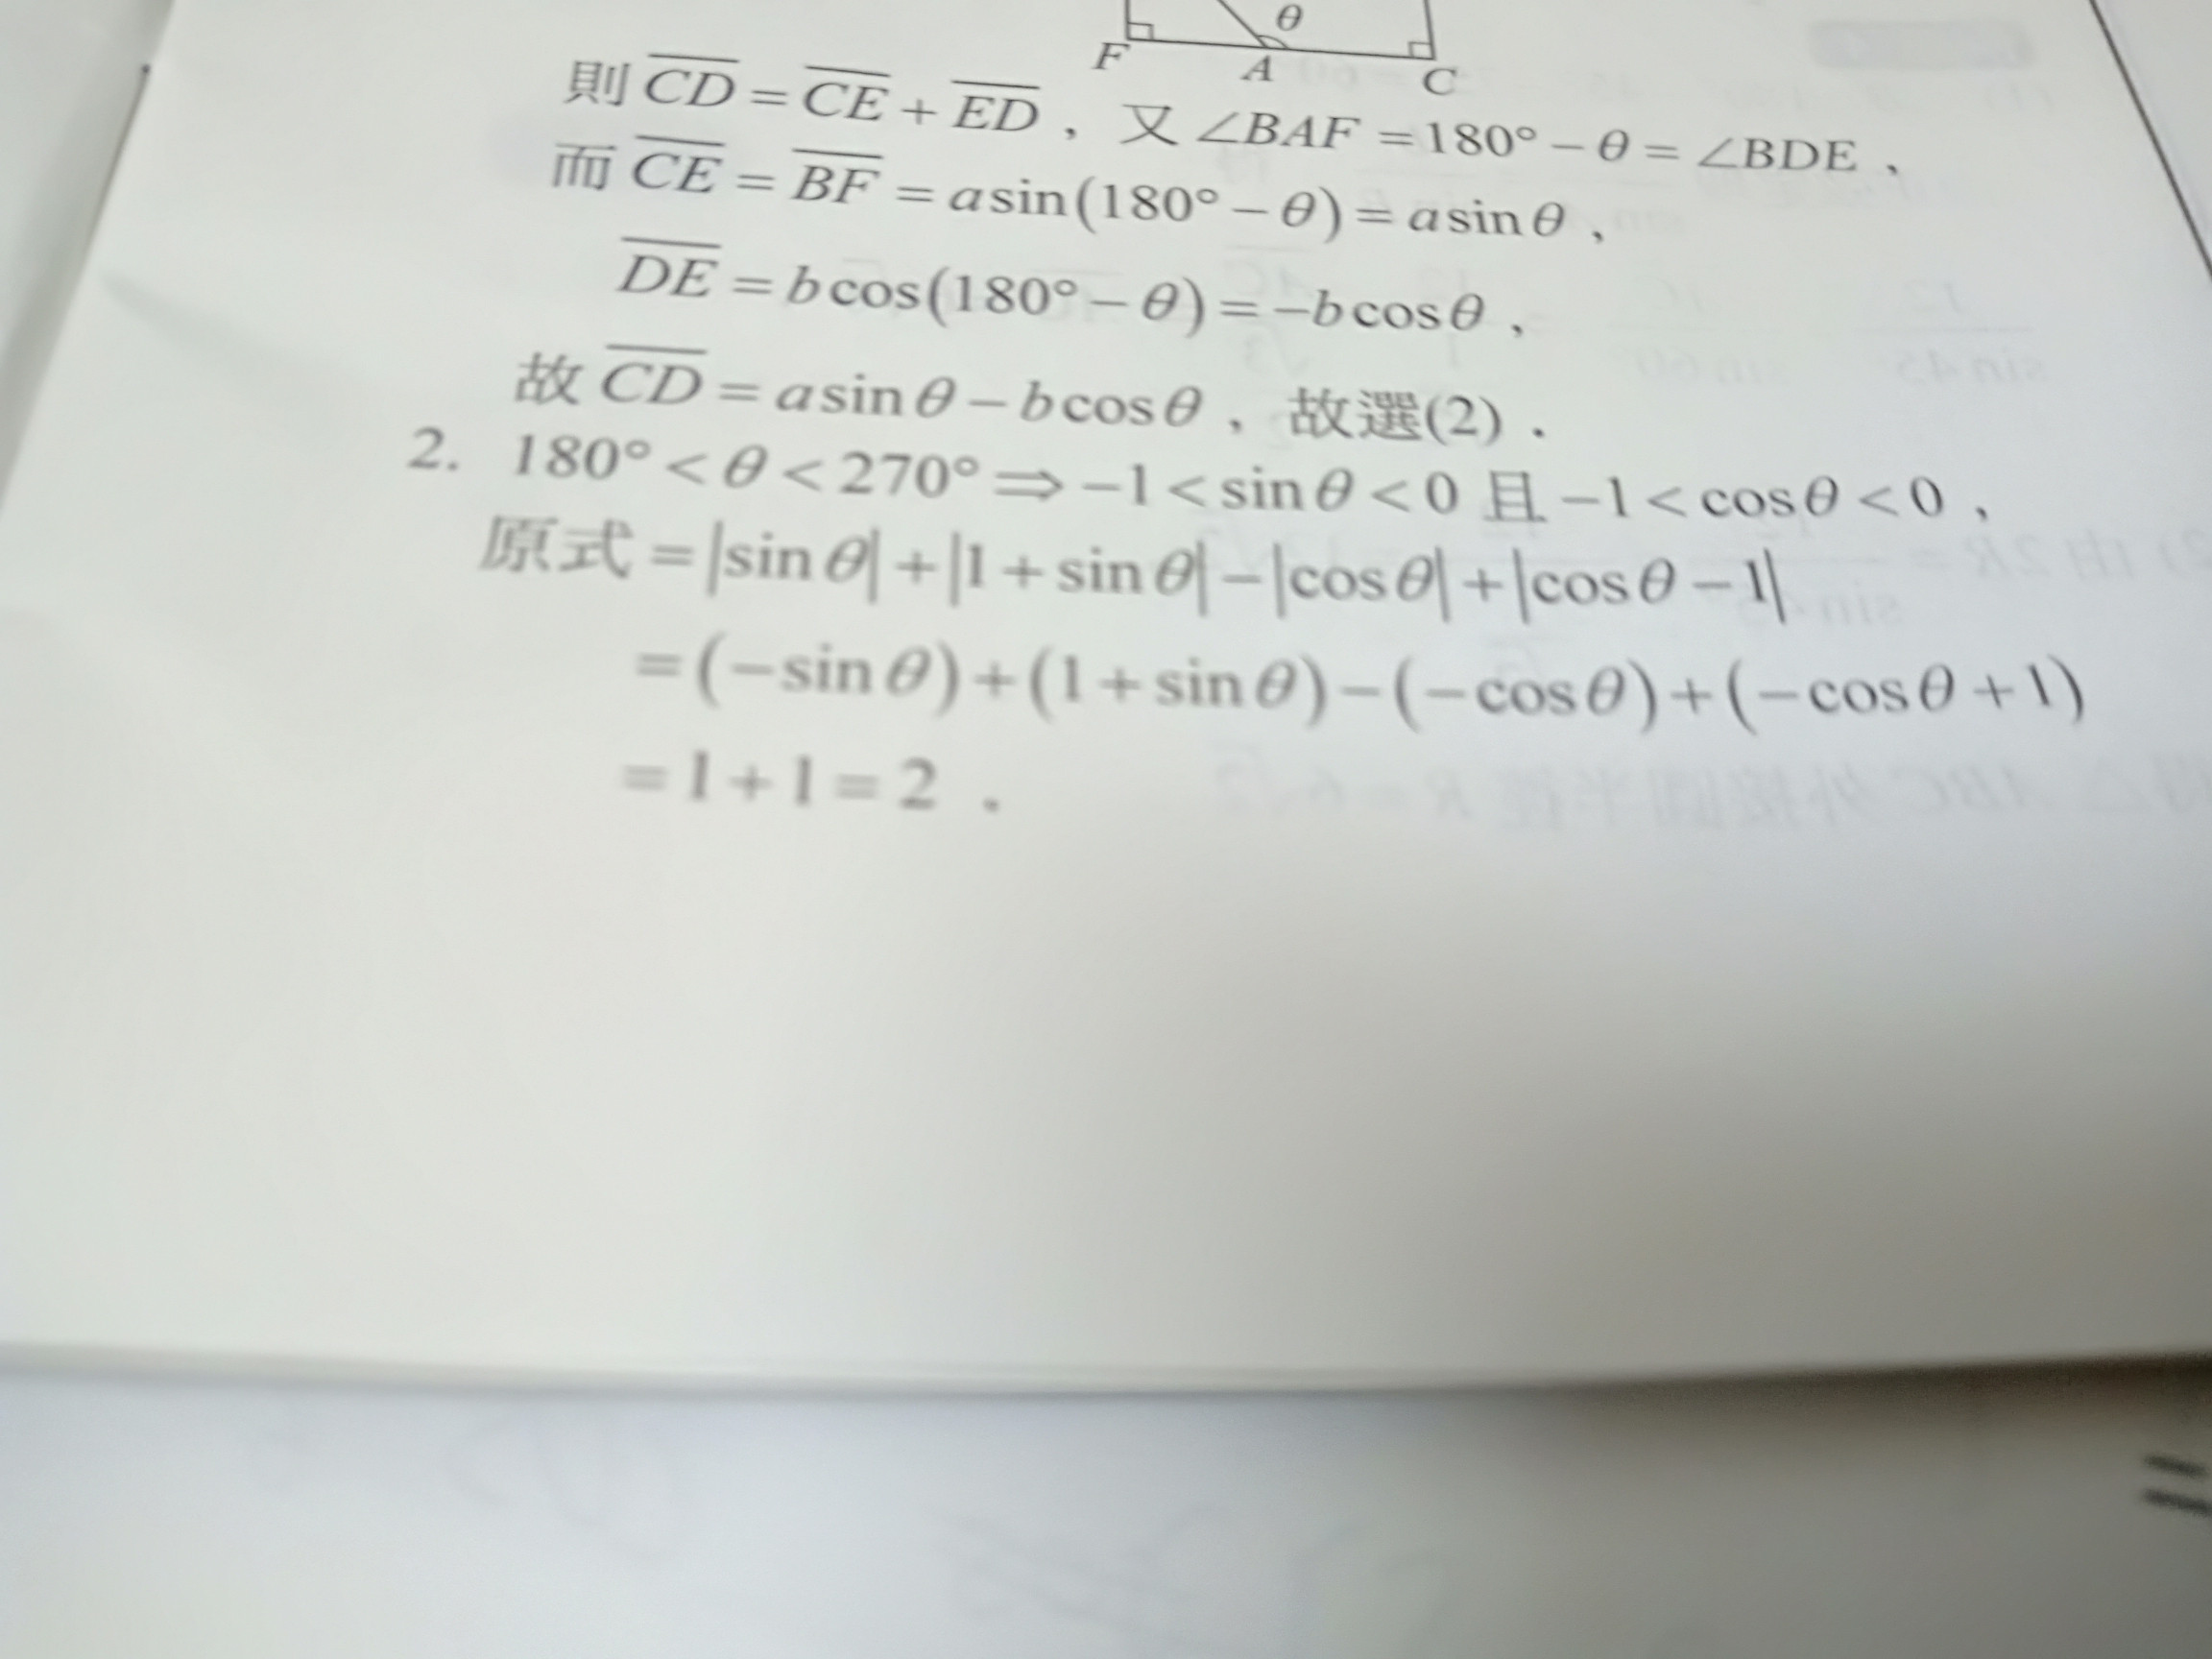 θ
F A C
則 CD = CE + ED ， 又 ∠BAF = 180° − θ = ∠BDE ，
而 CE = BF = a sin(180° − θ) = a sin θ ，
DE = b cos(180° − θ) = −b cos θ ，
故 CD = a sin θ − b cos θ ， 故選(2) ．
2. 180° < θ < 270° ⇒ −1 < sin θ < 0 且 −1 < cos θ < 0 ，
原式 = |sin θ| + |1 + sin θ| − |cos θ| + |cos θ − 1|
= (−sin θ) + (1 + sin θ) − (−cos θ) + (−cos θ + 1)
= 1 + 1 = 2 ．